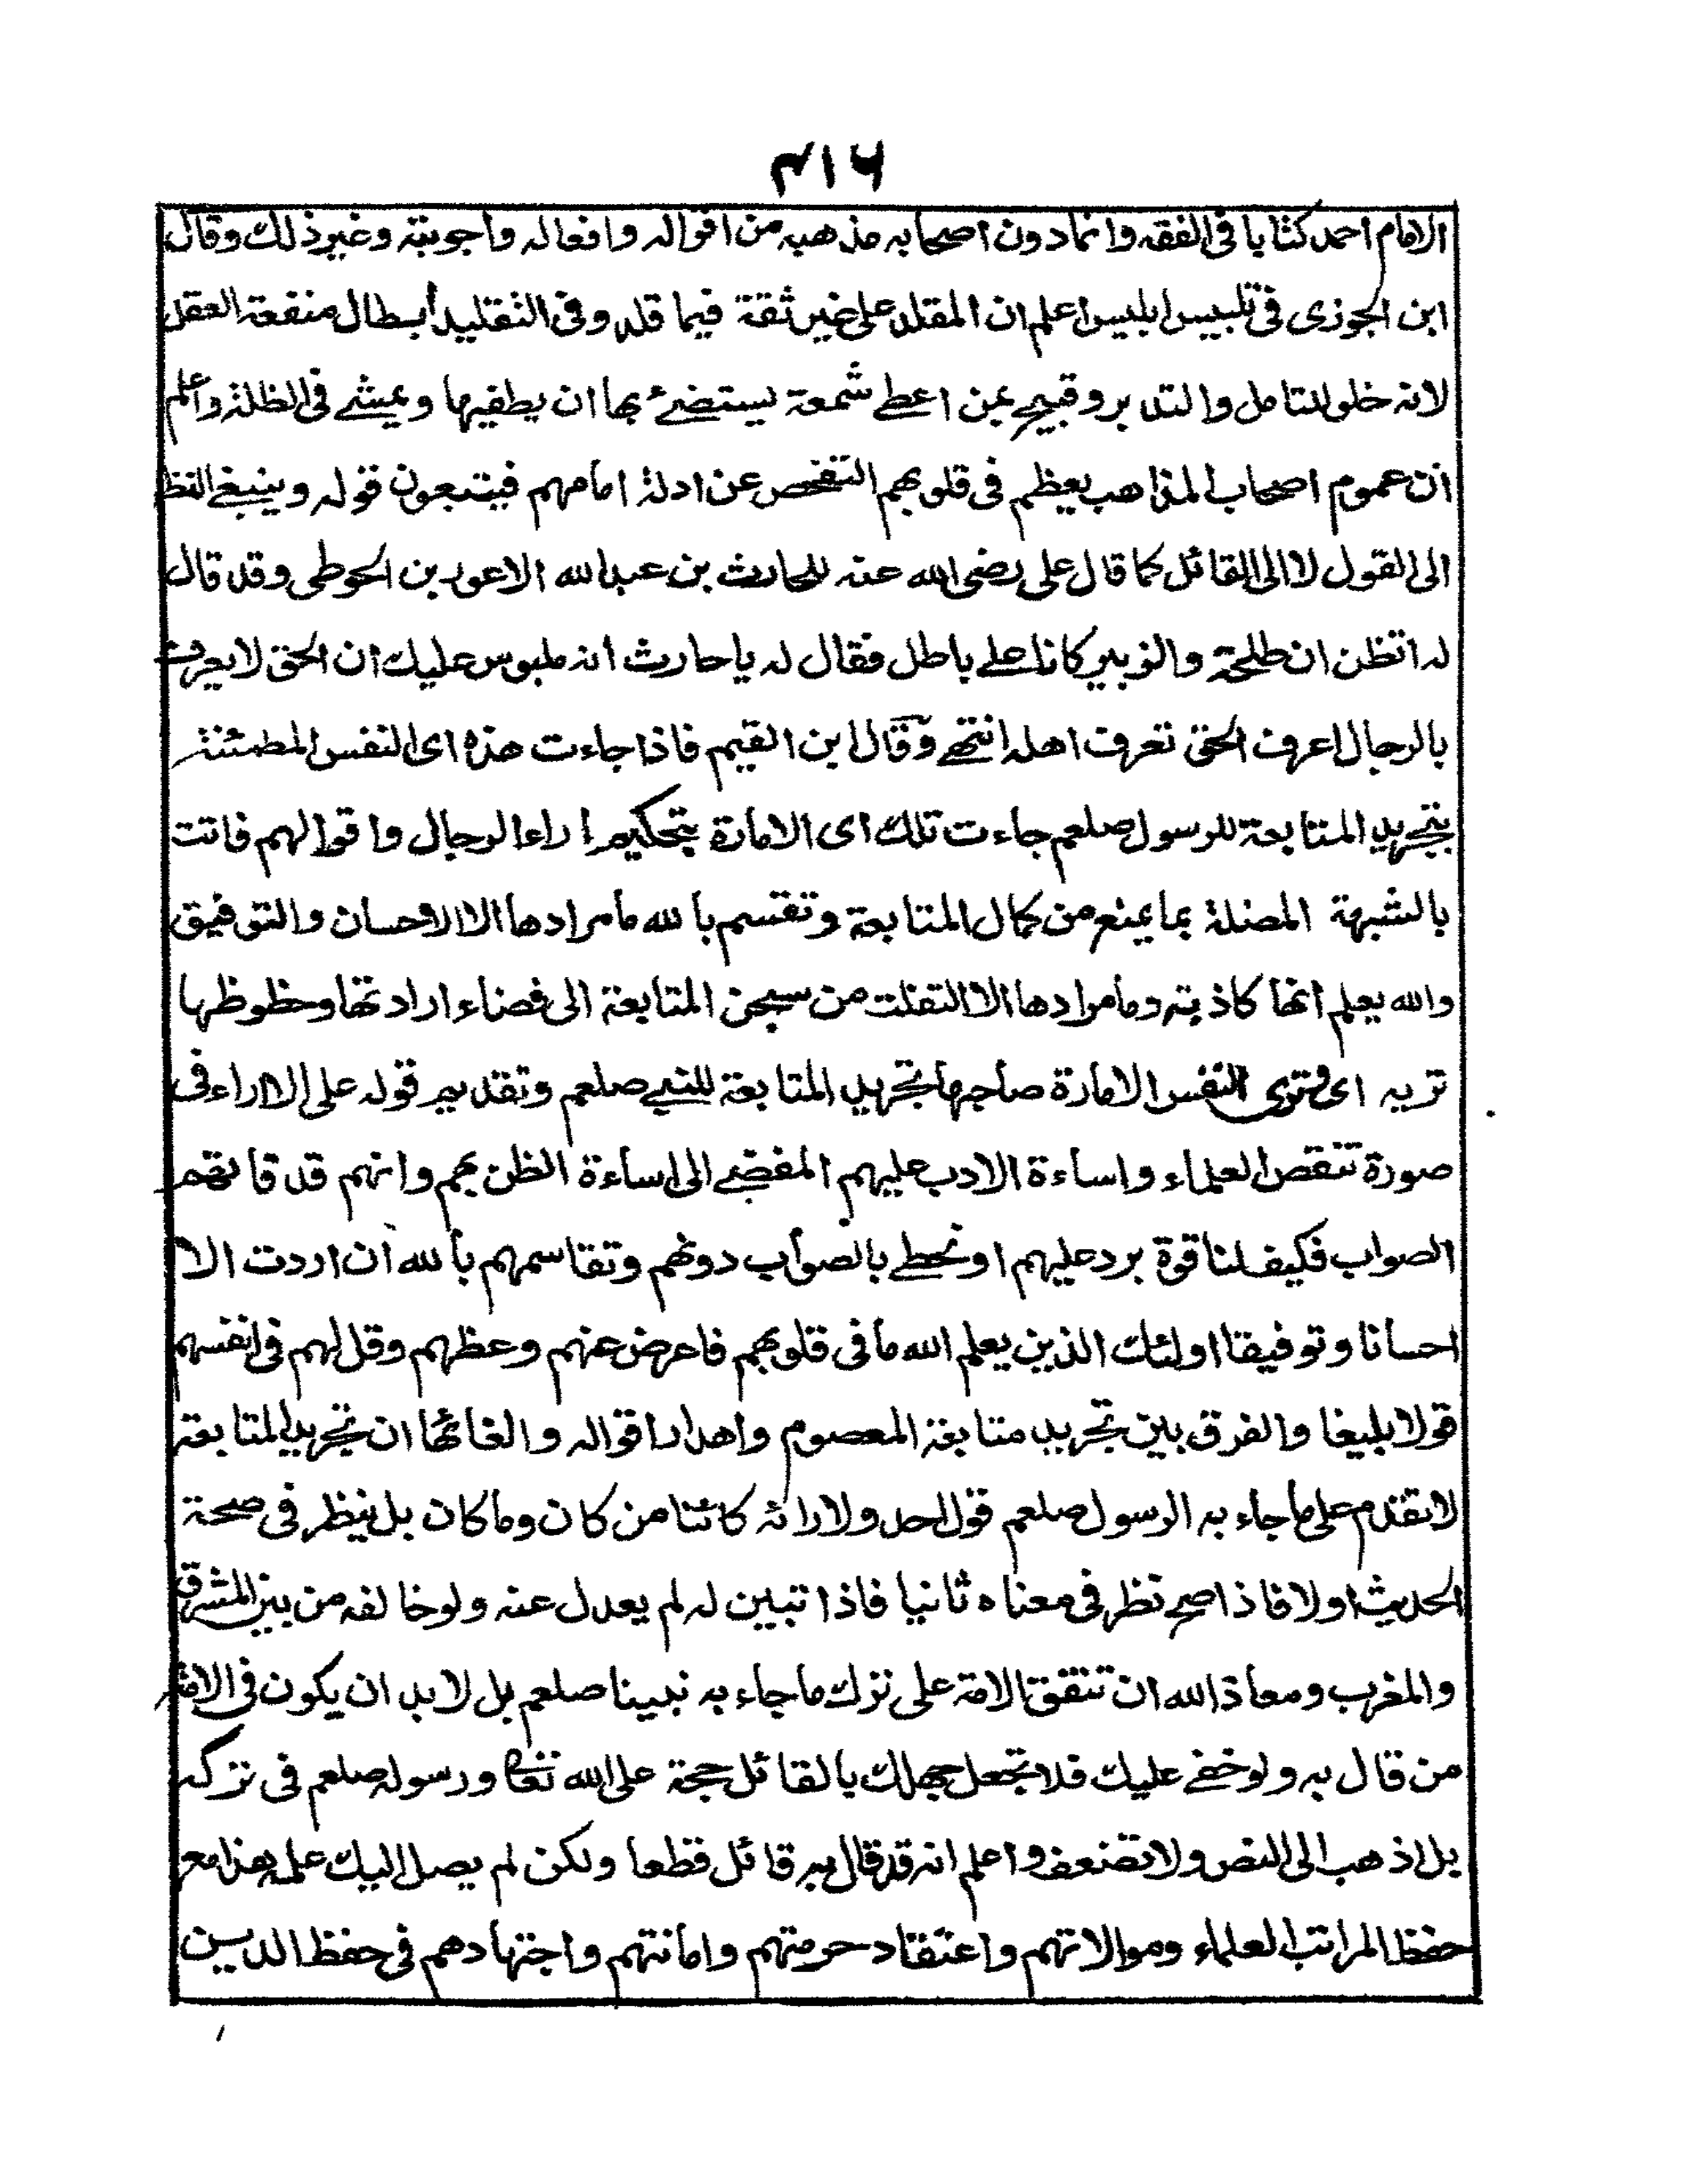 ٣١٦
الامام احمد كتابا فى الفقه وانما دون اصحابه مذهبه من اقواله وافعاله واجوبته وغير ذلك وقال
ابن الجوزى فى تلبيس ابليس اعلم ان المقلد على غير ثقة فيما قلد وفى التقليد أبطال منفعة العقل
لانه خلق للتامل والتدبر وقبيح بمن اعطے شمعة يستضئ بها ان يطفيها ويمشے فى الظلمة واعلم
ان عموم اصحاب المذاهب يعظم فى قلوبهم التفحص عن ادلة امامهم فيتبعون قوله وينبغے النظر
الى القول لا الى القائل كما قال على رضى الله عنه للحارث بن عبدالله الاعور بن الحوطى وقد قال
له اتظن ان طلحة والزبير كانا علے باطل فقال له يا حارث انه ملبوس عليك ان الحق لا يعرف
بالرجال اعرف الحق تعرف اهله انتهے وقال ابن القيم فاذا جاءت هذه اى النفس المطمئنة
بتجريد المتابعة للرسول صلعم جاءت تلك اى الامارة بتحكيم اراء الرجال واقوالهم فاتت
بالشبهة المضلة بما يمنع من كمال المتابعة وتقسم بالله ما مرادها الا الاحسان والتوفيق
والله يعلم انها كاذبة وما مرادها الا التفلت من سجن المتابعة الى فضاء ارادتها وحظوظها
تريه اى وترى النفس الامارة صاحبها تجريد المتابعة للنبے صلعم وتقديم قوله على الاراء فى
صورة تنقص العلماء واساءة الادب عليهم المفضے الى اساءة الظن بهم وانهم قد فاتهم
الصواب فكيف لنا قوة برد عليهم او نحطے بالصواب دونهم وتقاسمهم بالله ان اردت الا
احسانا وتوفيقا اولئك الذين يعلم الله ما فى قلوبهم فاعرض عنهم وعظهم وقل لهم فى انفسهم
قولا بليغا والفرق بين تجريد متابعة المعصوم واهدار اقواله والغائها ان تجريد المتابعة
لا تقدم على ما جاء به الرسول صلعم قول احد ولا رائه كائنا من كان وما كان بل ينظر فى صحة
الحديث اولا فاذا صح نظر فى معناه ثانيا فاذا تبين له لم يعدل عنه ولو خالفه من بين المشرق
والمغرب ومعاذ الله ان تتفق الامة على ترك ما جاء به نبينا صلعم بل لا بد ان يكون فى الامة
من قال به ولو خفے عليك فلا تجعل جهلك بالقائل حجة على الله تعالى ورسوله صلعم فى تركه
بل اذهب الى النص ولا تضعف واعلم انه قد قال به قائل قطعا ولكن لم يصل اليك علمه هذا مع
حفظ المراتب العلماء وموالاتهم واعتقاد حرمتهم وامانتهم واجتهادهم فى حفظ الدين